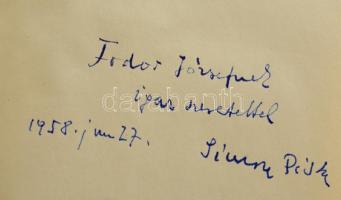 Fodor Józsefnek
igaz szeretettel
1958. jun 27.
Simon Pista
darabanth